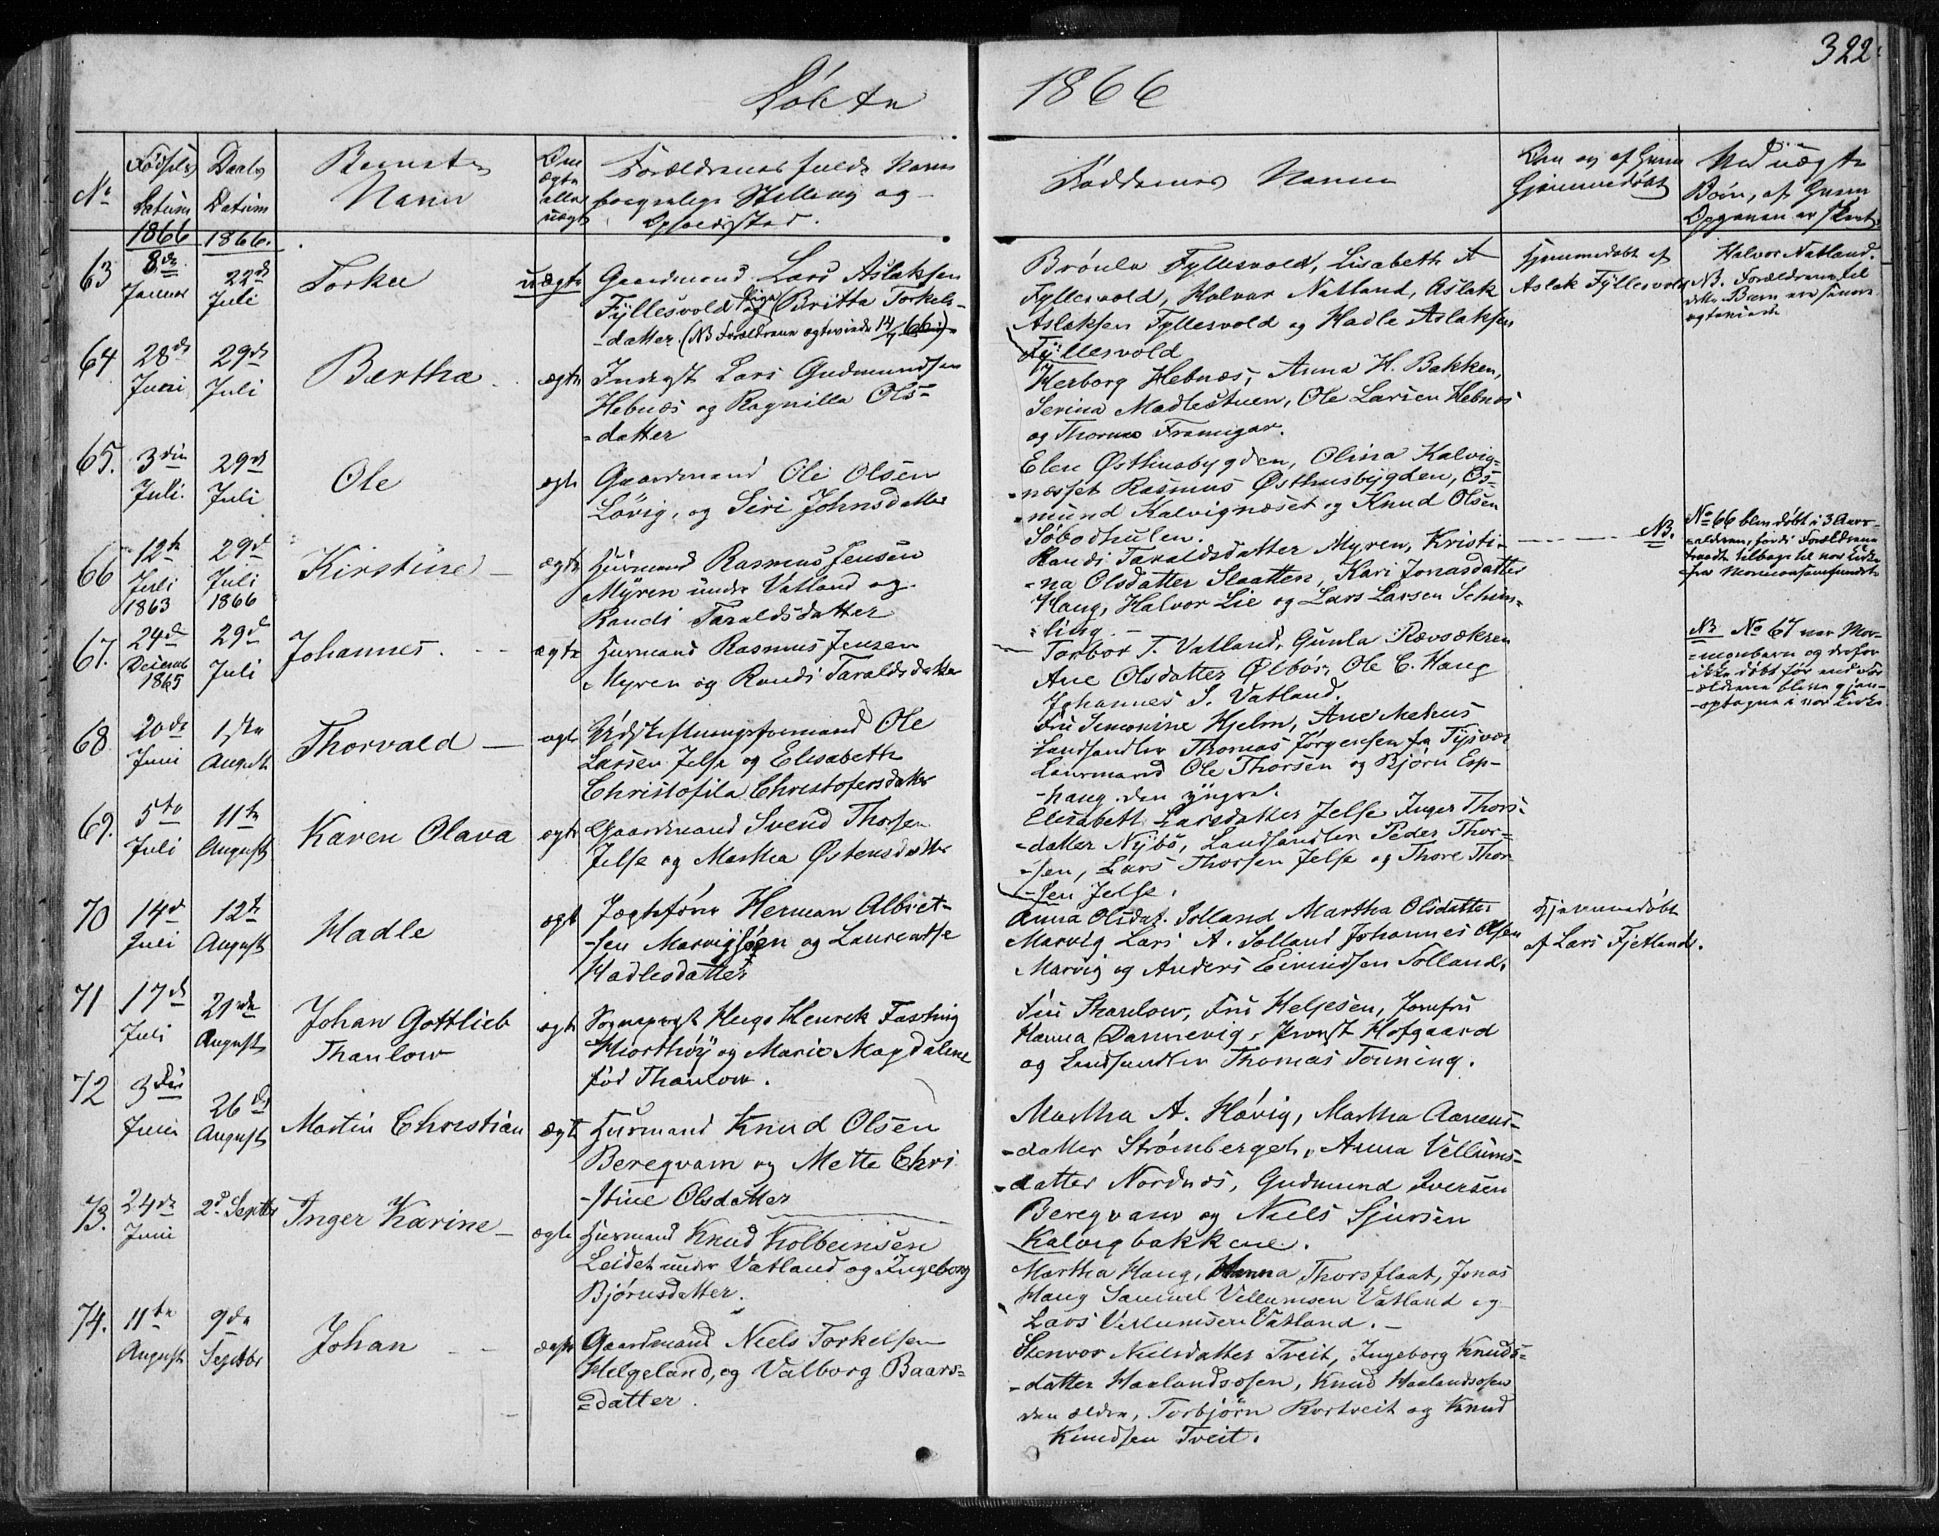 322.
Døbte 1866
No
Fødsels Datum
Daabs Datum
Barnets Navn
Om ægte eller uægte
Forældrenes fulde Navn borgerlige Stilling og Opholdssted.
Faddernes Navne
Om og af hvem Hjemmedøbt
Ved uægte Børn, af hvem Opgaven er skeet.
1866 1866.
63
8de Januar
22de Juli
Torkel
uægte
Gaardmand Lars Aslaksen
Fyllesvold og Pige Britta Torkels-
-datter. (NB Forældrene ægteviede 14/4 66.)
Brönla Fyllesvold, Lisabeth A
Fyllesvold, Halvor Natland, Aslak
Aslaksen Fyllesvold og Hadle Aslaksen
Fyllesvold
Hjemmedøbt af
Aslak Fyllesvold
Halvor Natland.
NB. Forældrene til
dette Barn ere senere
ægteviede
64
28de Juni
29de Juli
Bertha
ægte
Inderst Lars Gudmundsen
Hebnæs og Ragnilla Ols-
-datter
Herborg Hebnæs, Anna H. Bakken,
Serina Madlestuen, Ole Larsen Hebnæs
og Thormo Framigar.
65.
3die Juli.
29de Juli
Ole
ægte
Gaardmand Ole Olsen
Løvig, og Siri Johnsdatter
Elen Østhusbygden, Olina Kalvig-
-næsset Rasmus Østhusbygden, Os-
-mund Kalvignæset og Knud Olsen
Søbødhulen.
66
12te Juli 1863
29de Juli 1866
Kirstine
ægte
Huusmand Rasmus Jensen
Myren under Vatland og
Randi Taraldsdatter
Randi Taraldsdatter Myren, Kristi-
-na Olsdatter Slaatten, Kari Jonasdatter
Haug, Halvor Lie og Lars Larsen Schim-
-ling.
NB.
No 66 blev døbt i 3 Aars-
-alderen, fordi Forældrene
traadte tilbage til vor Kirke
fra Mormonsamfundet
67.
24de Decemb 1865
29de Juli
Johannes.
ægte
Huusmand Rasmus Jensen
Myren og Randi Taraldsdatter
Torbor T. Vatland, Gunla Rævsækren
Ane Olsdatter Ølbor, Ole C. Haug
Johannes S. Vatland.
NB No 67 var Mor-
-monbarn og derfor
ikke døbt før end For-
-ældrene bleve gjen-
-optagne i vor Kirke
68
20de Juni
1ste August
Thorvald
ægte
Udskiftningsformand Ole
Larsen Jelse og Elisabeth
Christofila Christofersdatter
Fru Simonine Hjelm, Ane Mehus
Landhandler Thomas Jørgensen fra Tysvær
Lensmand Ole Thorsen og Bjørn Esp-
-haug den yngre.
69.
5te Juli
11te August
Karen Olava
ægte
Gaardmand Svend Thorsen
Jelse og Martha Østensdatter
Elisabeth Larsdatter Jelse Inger Thors-
-datter Nybø, Landhandler Peder Thor-
-sen, Lars Thorsen Jelse og Thore Thor-
-sen Jelse.
70
14de Juli
12te August
Hadle
ægt
Jægtefører Herman Albret-
-sen Marvigsøen og Laurentse
Hadlesdatter
Anna Olsdat. Solland Martha Olsdatter
Marvig Lars A. Solland Johannes Olsen
Marvig og Anders Eivindsen Solland.
Hjemmedøbt
af Lars Fjetland.
71
17de Juli
21de August
Johan Gottlieb
Thaulow
ægte
Sognepræst Hugo Henrik Fasting
Hiorthøy og Marie Magdalene
fød Thaulow.
Fru Thaulow, Fru Helgesen, Jomfru
Hanna Dannevig, Provst Hofgaard
og Landhandler Thomas Tonning.
72
3die Juni
26de August
Martin Christian
ægte
Huusmand Knud Olsen
Beregvam og Mette Chri
-stine Olsdatter
Martha A. Høvig, Martha Aanens-
-datter Strømberget, Anna Vellums-
-datter Nordnæs, Gudmund Iversen
Beregvam og Niels Sjursen
Kalvigbakkene.
73.
24de Juni
2d Septbr
Inger Karine
ægte
Huusmand Knud Kolbeinsen
Leidet under Vatland og Ingeborg
Bjørnsdatter.
Martha Haug, Hanna Thorsflaat, Jonas
Haug Samuel Vellumsen Vatland og
Lars Vellumsen Vatland.
74.
11te August
9de Septbr
Johan
ægte
Gaardmand Niels Torkelsen
Helgeland, og Valborg Baars-
-datter.
Stenvor Nielsdatter Tveit, Ingeborg Knuds-
-datter Haalandsosen, Knud Haalandsosen
den ældre, Torbjørn Rortveit og Knud
Knudsen Tveit.